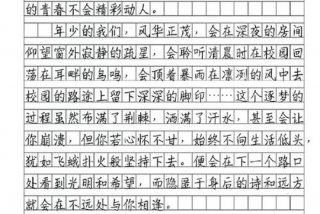 的青春不会精彩动人。
年少的我们，风华正茂，会在深夜的房间
仰望窗外寂静的疏星，会聆听清晨时在校园回
荡在耳畔的鸟鸣，会顶着暴雨在凛冽的风中去
校园的路途上留下深深的脚印……这个逐梦的
过程虽然布满了荆棘，洒满了汗水，甚至会让
你崩溃，但你若心怀不甘，始终不向生活低头，
犹如飞蛾扑火般坚持下去。便会在下一个路口
处看到光明和希望，而隐显于身后的诗和远方
就会在不远处与你相逢。